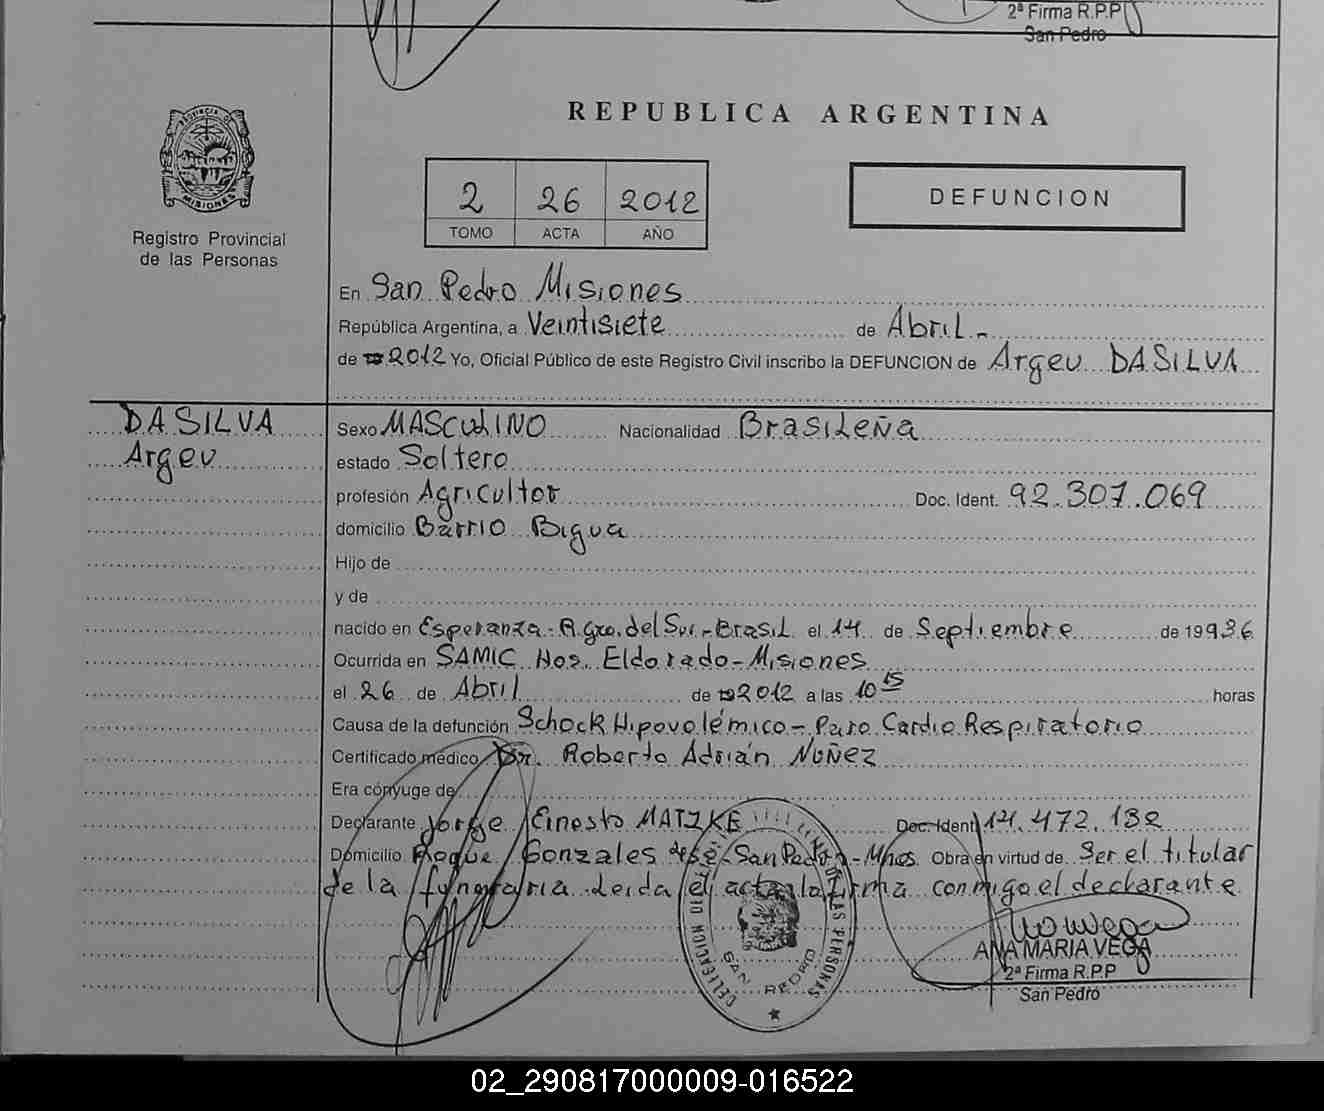 2ª Firma R.P.P
San Pedro
REPUBLICA ARGENTINA
PROVINCIA DE
MISIONES
Registro Provincial
de las Personas
2 26 2012
TOMO ACTA AÑO
DEFUNCION
En San Pedro Misiones
República Argentina, a Veintisiete de Abril.-
de 2012 Yo, Oficial Público de este Registro Civil inscribo la DEFUNCION de Argeu DASILVA
DASILVA
Argeu
Sexo MASCULINO Nacionalidad Brasileña
estado Soltero
profesión Agricultor Doc. Ident. 92.307.069
domicilio Barrio Bigua
Hijo de
y de
nacido en Esperanza - R. Gro. del Sur - Brasil el 14 de Septiembre de 1936
Ocurrida en SAMIC Hos. Eldorado - Misiones
el 26 de Abril de 2012 a las 10 15 horas
Causa de la defunción Schock Hipovolémico - Paro Cardio Respiratorio
Certificado médico Dr. Roberto Adrián NUÑEZ
Era cónyuge de
Declarante Jorge Ernesto MATZKE Doc. Ident. 14.472.132
Domicilio Roque Gonzales - San Pedro - Mnes. Obra en virtud de Ser el titular
de la funeraria. Leida el acta la firma conmigo el declarante.
DELEGACION DE LAS PERSONAS
SAN PEDRO
ANA MARIA VEGA
2ª Firma R.P.P
San Pedro
02_290817000009-016522